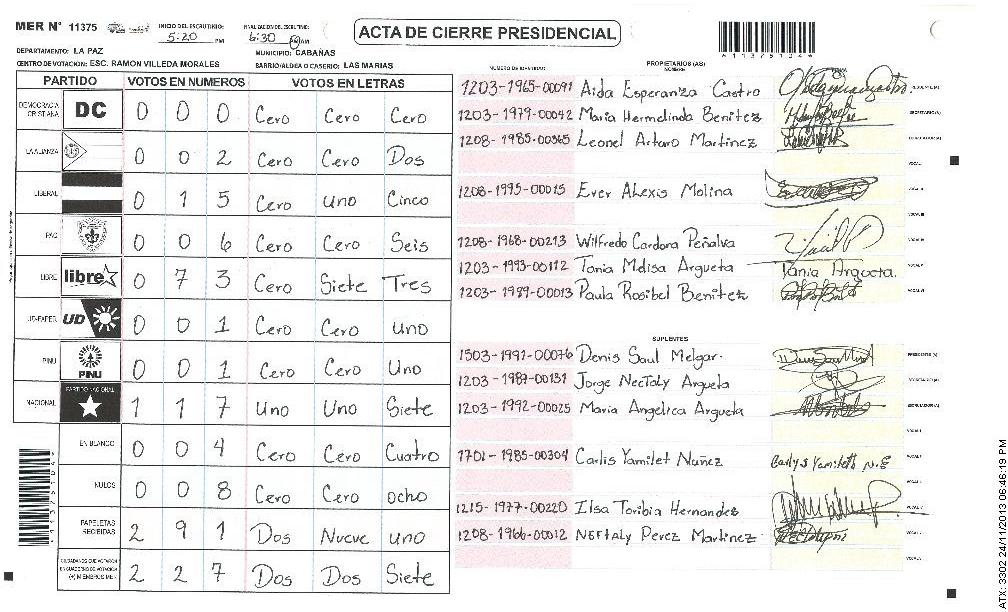 MER N° 11375
INICIO DEL ESCRUTINIO: 5:20 PM
FINALIZACION DEL ESCRUTINIO: 6:30
ACTA DE CIERRE PRESIDENCIAL
A11375104A
DEPARTAMENTO: LA PAZ
MUNICIPIO: CABAÑAS
CENTRO DE VOTACION: ESC. RAMON VILLEDA MORALES
BARRIO/ALDEA O CASERIO: LAS MARIAS
PARTIDO VOTOS EN NUMEROS VOTOS EN LETRAS
DEMOCRACIA CRISTIANA DC 0 0 0 Cero Cero Cero
LA ALIANZA 0 0 2 Cero Cero Dos
LIBERAL 0 1 5 Cero Uno Cinco
PAC 0 0 6 Cero Cero Seis
LIBRE libre 0 7 3 Cero Siete Tres
UD-FAPER UD 0 0 1 Cero Cero Uno
PINU PINU 0 0 1 Cero Cero Uno
NACIONAL PARTIDO NACIONAL 1 1 7 Uno Uno Siete
EN BLANCO 0 0 4 Cero Cero Cuatro
NULOS 0 0 8 Cero Cero ocho
PAPELETAS RECIBIDAS 2 9 1 Dos Nueve uno
CIUDADANOS QUE VOTARON EN CUADERNO DE VOTACION (+) MIEMBROS MER 2 2 7 Dos Dos Siete
NUMERO DE IDENTIDAD PROPIETARIOS (AS) NOMBRE FIRMA
1203-1965-00091 Aida Esperanza Castro
1203-1979-00042 Maria Hermelinda Benitez SECRETARIO (A)
1208-1985-00365 Leonel Arturo Martinez ESCRUTADOR (A)
VOCAL I
1208-1995-00015 Ever Alexis Molina VOCAL II
VOCAL III
1208-1968-00213 Wilfredo Cardona Peñalva VOCAL IV
1203-1993-00112 Tania Melisa Argueta Tania Argueta. VOCAL V
1203-1989-00013 Paula Rosibel Benitez VOCAL VI
SUPLENTES
1503-1991-00076 Denis Saul Melgar. PRESIDENTE (A)
1203-1987-00131 Jorge Nectaly Argueta SECRETARIO (A)
1203-1992-00025 Maria Angelica Argueta ESCRUTADOR (A)
VOCAL I
1701-1985-00304 Carlis Yamilet Nuñez VOCAL II
VOCAL III
1215-1977-00220 Ilsa Toribia Hernandez VOCAL IV
1208-1966-00012 Neftaly Perez Martinez VOCAL V
VOCAL VI
A11375104A
ATX: 3302 24/11/2013 06:46:19 PM